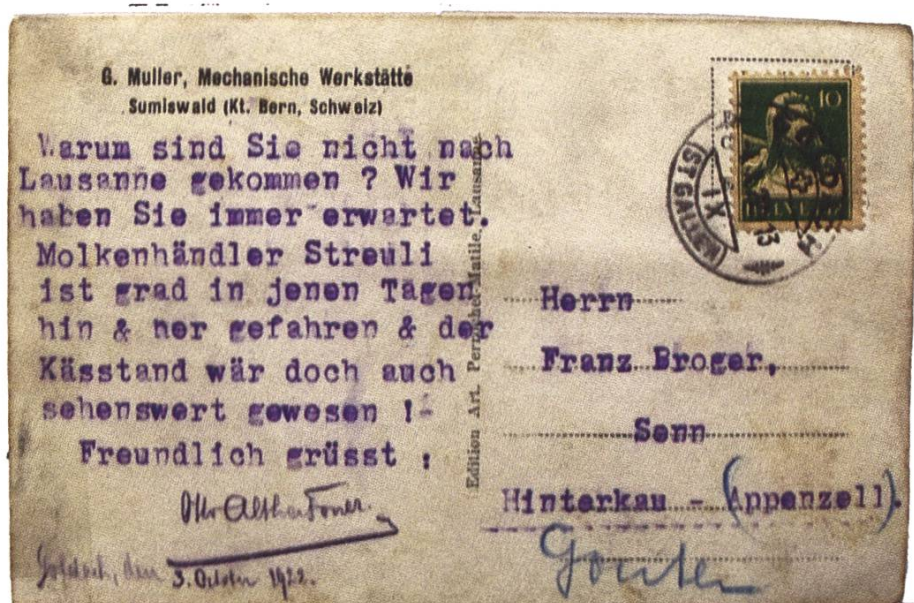 G. Muller, Mechanische Werkstätte
Sumiswald (Kt. Bern, Schweiz)
Warum sind Sie nicht nach
Lausanne gekommen ? Wir
haben Sie immer erwartet.
Molkenhändler Streuli
ist grad in jenen Tagen
hin & her gefahren & der
Kässtand wär doch auch
sehenswert gewesen !
Freundlich grüsst :
3. October 1922.
Edition Art. Perrochet-Matile, Lausanne
10
HELVETIA
(ST GALLEN)
IX
13
Herrn
Franz Broger,
Senn
Hinterkau - (Appenzell).
Gonten